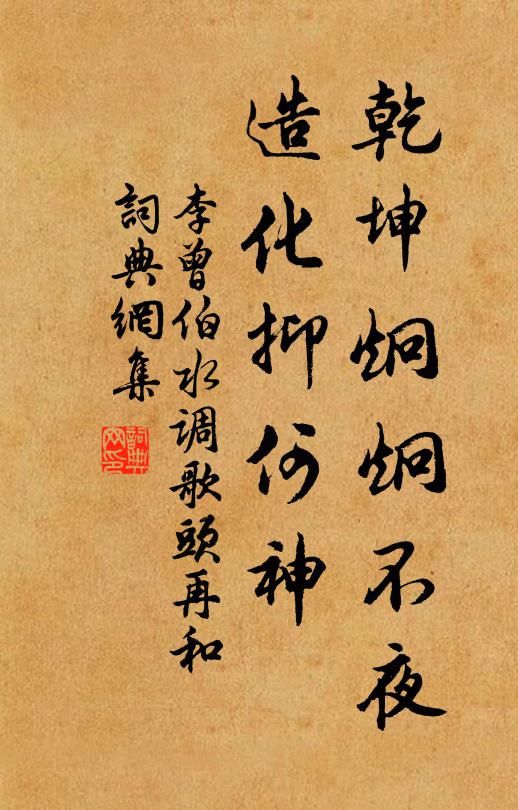 乾坤炯炯不夜
造化抑何神
李曾伯水调歌頭再和
詞典網集
詞典網印